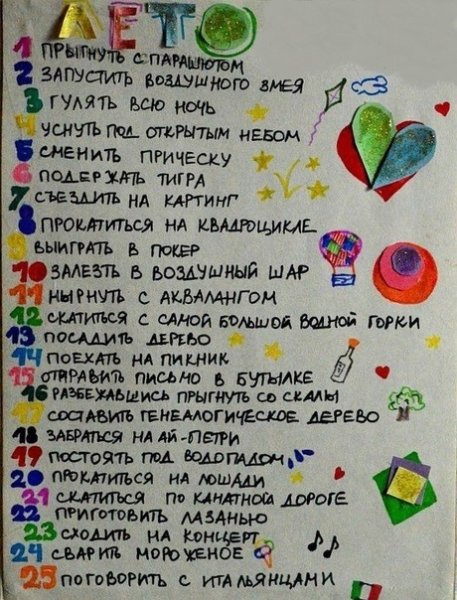 ЛЕТО
1 ПРЫГНУТЬ С ПАРАШЮТОМ
2 ЗАПУСТИТЬ ВОЗДУШНОГО ЗМЕЯ
3 ГУЛЯТЬ ВСЮ НОЧЬ
4 УСНУТЬ ПОД ОТКРЫТЫМ НЕБОМ
5 СМЕНИТЬ ПРИЧЕСКУ
6 ПОДЕРЖАТЬ ТИГРА
7 СЪЕЗДИТЬ НА КАРТИНГ
8 ПРОКАТИТЬСЯ НА КВАДРОЦИКЛЕ
9 ВЫИГРАТЬ В ПОКЕР
10 ЗАЛЕЗТЬ В ВОЗДУШНЫЙ ШАР
11 НЫРНУТЬ С АКВАЛАНГОМ
12 СКАТИТЬСЯ С САМОЙ БОЛЬШОЙ ВОДНОЙ ГОРКИ
13 ПОСАДИТЬ ДЕРЕВО
14 ПОЕХАТЬ НА ПИКНИК
15 ОТПРАВИТЬ ПИСЬМО В БУТЫЛКЕ
16 РАЗБЕЖАВШИСЬ ПРЫГНУТЬ СО СКАЛЫ
17 СОСТАВИТЬ ГЕНЕАЛОГИЧЕСКОЕ ДЕРЕВО
18 ЗАБРАТЬСЯ НА АЙ-ПЕТРИ
19 ПОСТОЯТЬ ПОД ВОДОПАДОМ
20 ПРОКАТИТЬСЯ НА ЛОШАДИ
21 СКАТИТЬСЯ ПО КАНАТНОЙ ДОРОГЕ
22 ПРИГОТОВИТЬ ЛАЗАНЬЮ
23 СХОДИТЬ НА КОНЦЕРТ
24 СВАРИТЬ МОРОЖЕНОЕ
25 ПОГОВОРИТЬ С ИТАЛЬЯНЦАМИ